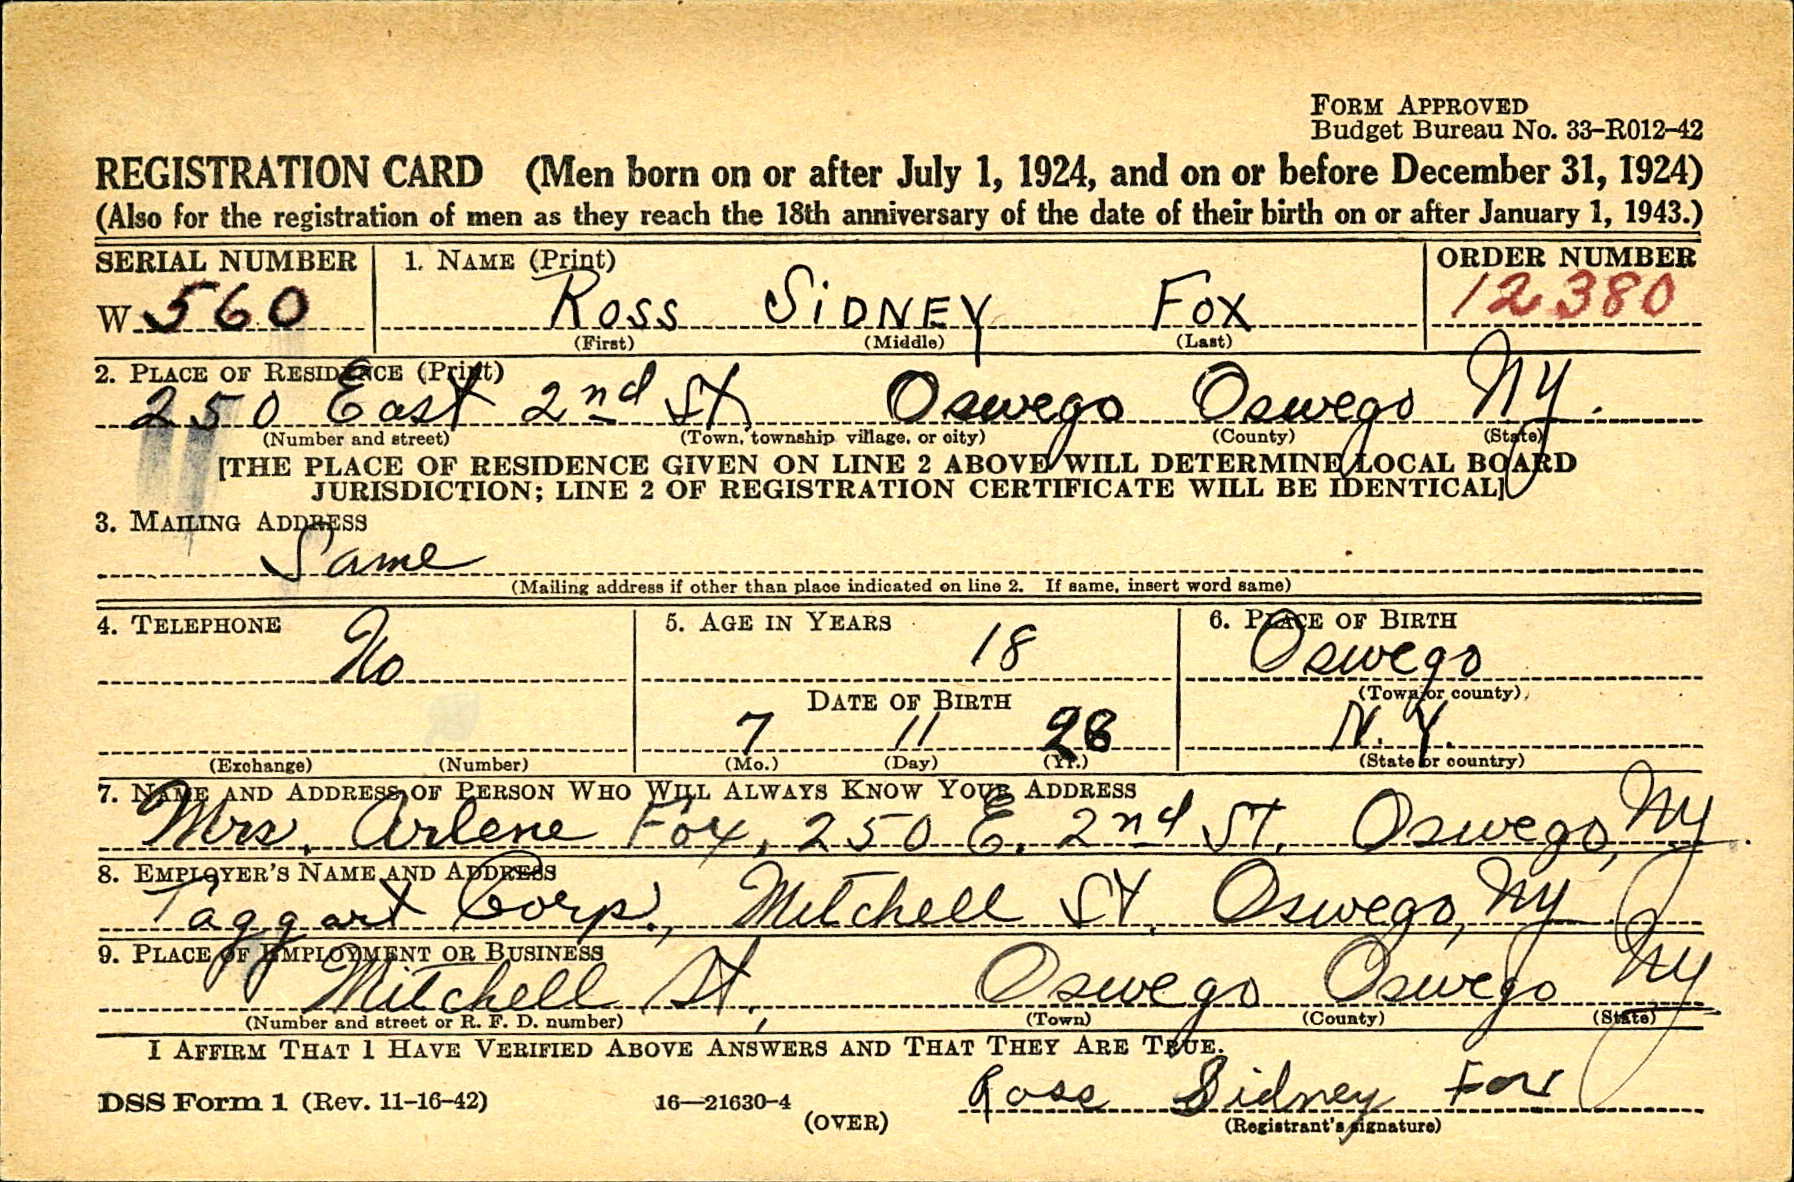 FORM APPROVED
Budget Bureau No. 33–R012–42
REGISTRATION CARD (Men born on or after July 1, 1924, and on or before December 31, 1924)
(Also for the registration of men as they reach the 18th anniversary of the date of their birth on or after January 1, 1943.)
SERIAL NUMBER 1. NAME (Print) ORDER NUMBER
W 560 ROSS SIDNEY FOX 12380
(First) (Middle) (Last)
2. PLACE OF RESIDENCE (Print)
250 East 2nd St Oswego Oswego NY.
(Number and street) (Town, township, village, or city) (County) (State)
[THE PLACE OF RESIDENCE GIVEN ON LINE 2 ABOVE WILL DETERMINE LOCAL BOARD
JURISDICTION; LINE 2 OF REGISTRATION CERTIFICATE WILL BE IDENTICAL]
3. MAILING ADDRESS
Same
(Mailing address if other than place indicated on line 2. If same, insert word same)
4. TELEPHONE 5. AGE IN YEARS 6. PLACE OF BIRTH
No 18 Oswego
(Town or county)
DATE OF BIRTH
7 11 N.Y.
(Exchange) (Number) (Mo.) (Day) (Yr.) (State or country)
7. NAME AND ADDRESS OF PERSON WHO WILL ALWAYS KNOW YOUR ADDRESS
Mrs. Arlene Fox, 250 E. 2nd ST. Oswego, NY
8. EMPLOYER'S NAME AND ADDRESS
Taggart Corp., Mitchell St. Oswego, NY
9. PLACE OF EMPLOYMENT OR BUSINESS
Mitchell St, Oswego Oswego NY
(Number and street or R. F. D. number) (Town) (County) (State)
I AFFIRM THAT I HAVE VERIFIED ABOVE ANSWERS AND THAT THEY ARE TRUE.
DSS Form 1 (Rev. 11–16–42) 16—21630–4 (OVER) Ross Sidney Fox
(Registrant's signature)